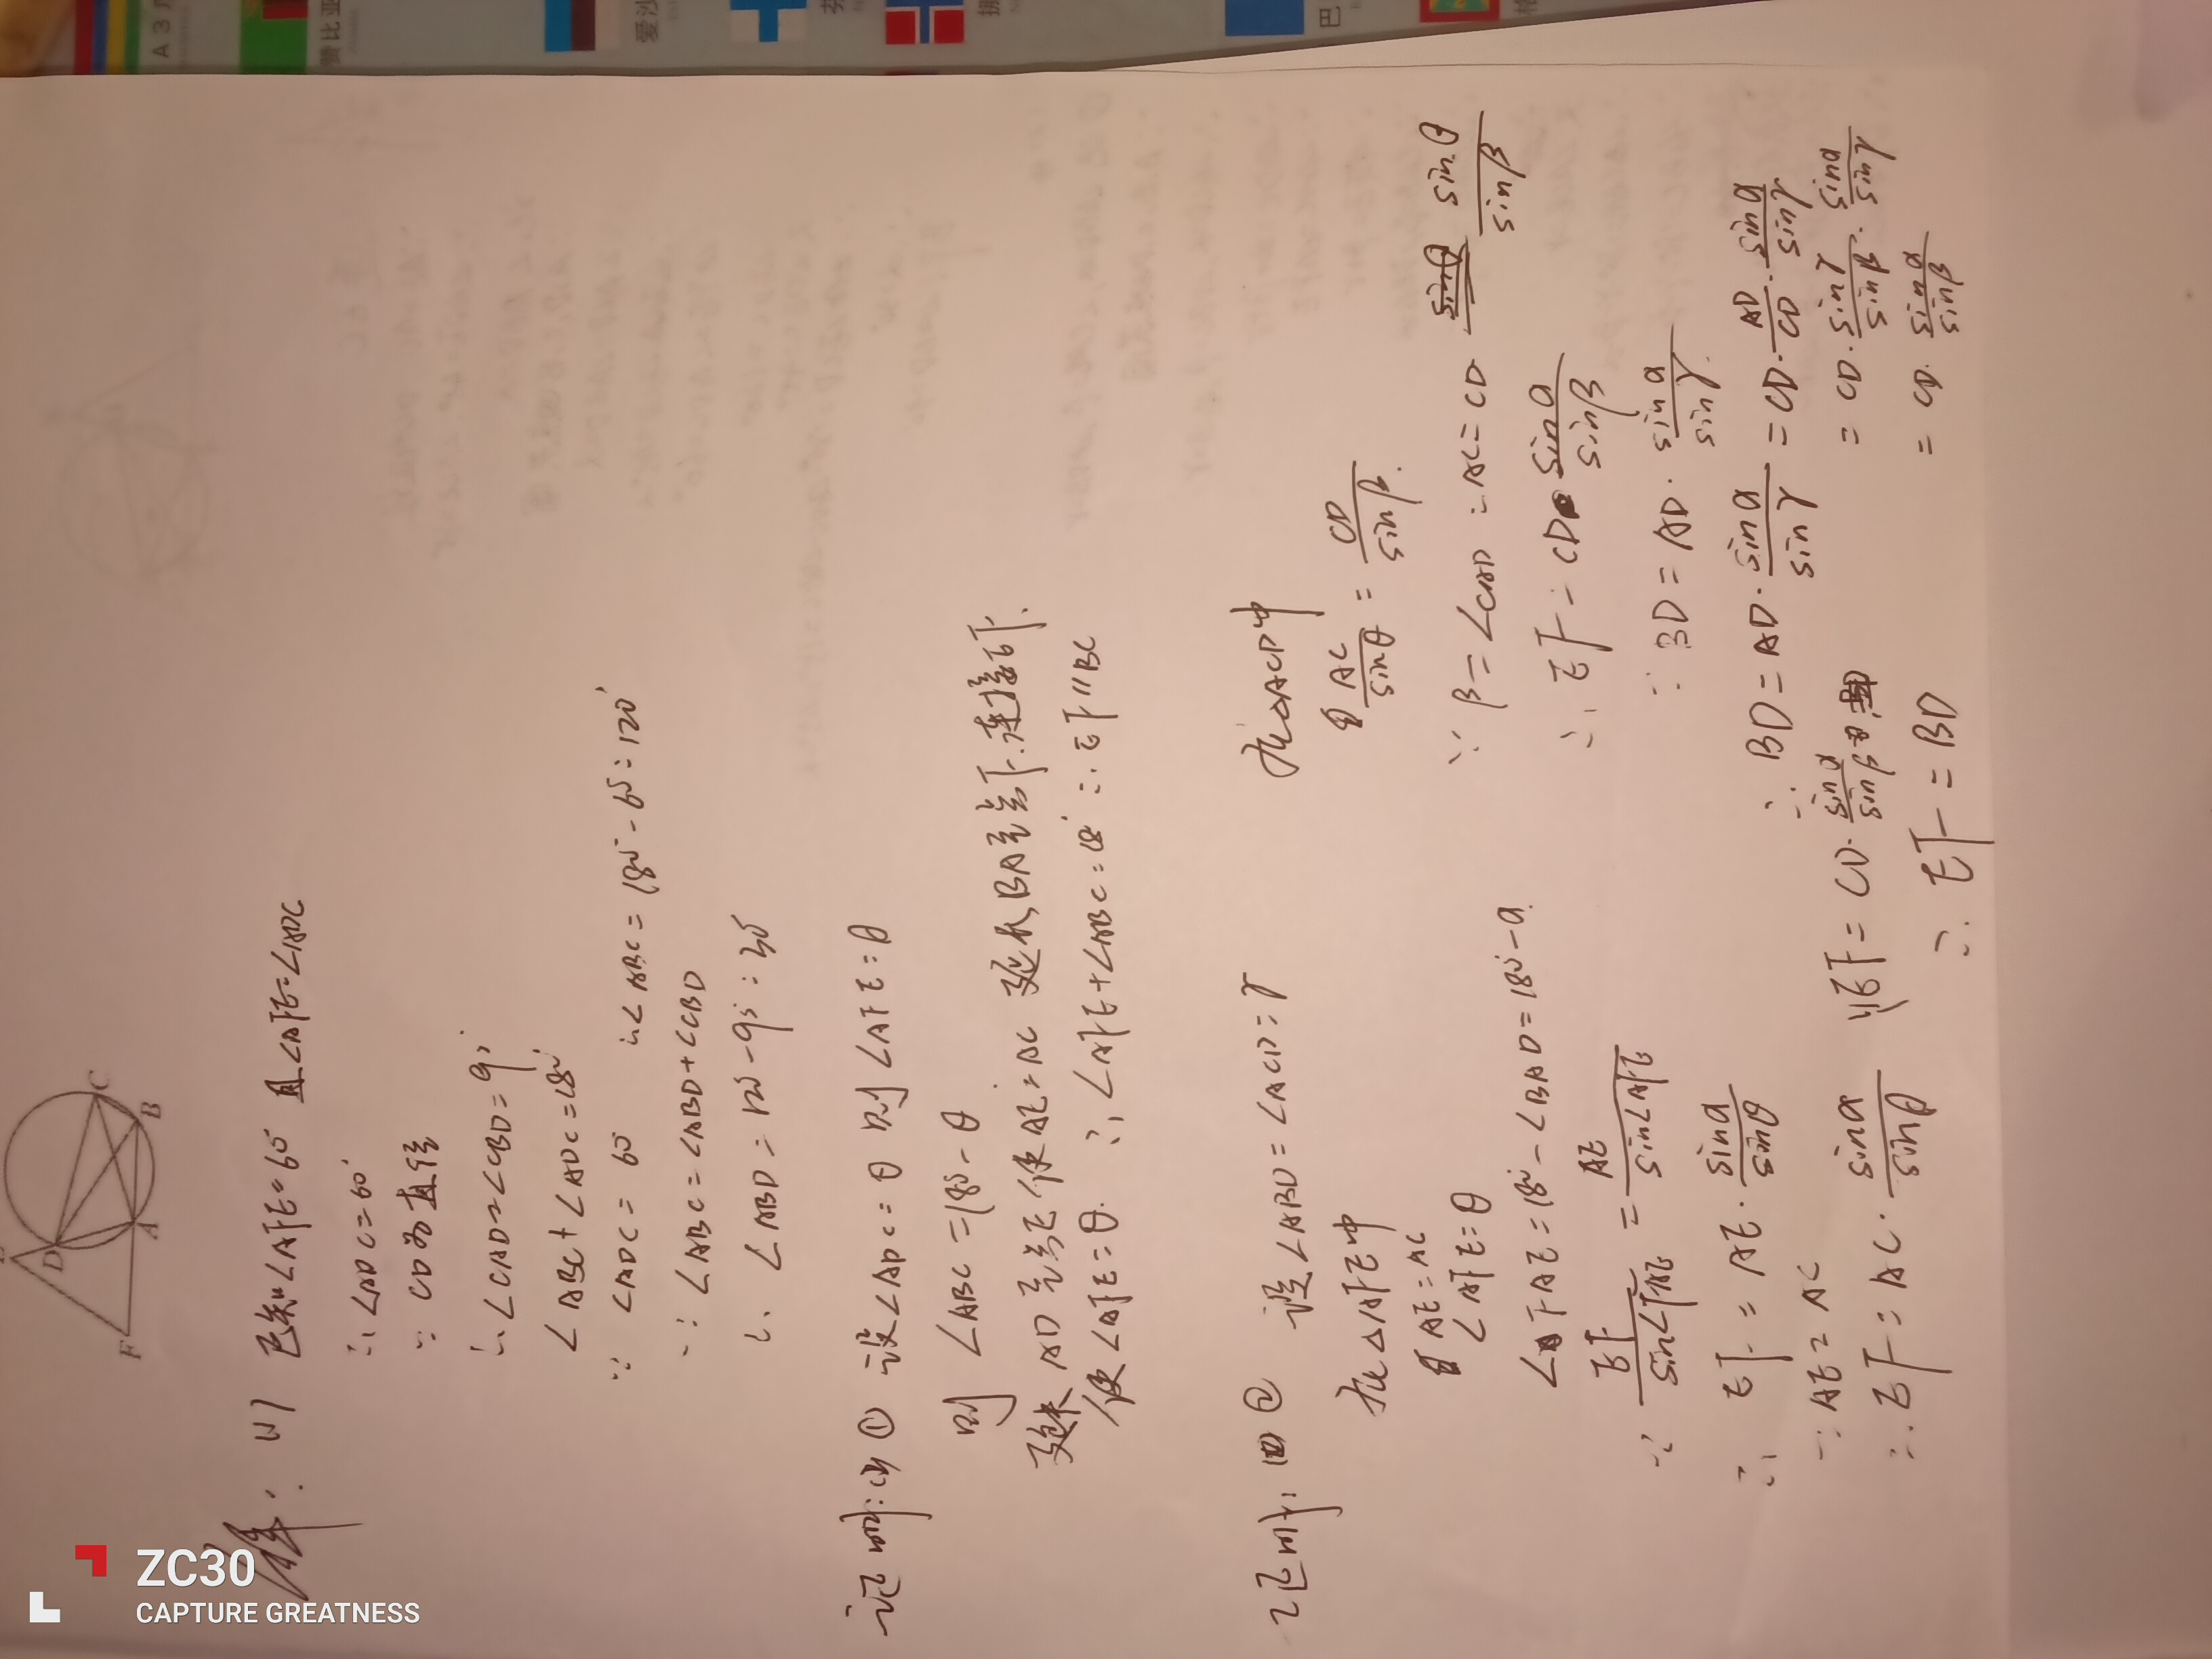 A 3
赞比亚
爱沙
芬
挪
巴
格
E
D
C
F
A
B
解: (1) 已知∠AFE=60° 且∠AFE=∠ADC
∴ ∠ADC=60°
∵ CD为直径
∴ ∠CAD=∠CBD=90°
∠ABC+∠ADC=180°
∵ ∠ADC=60° ∴∠ABC=180°-60°=120°
∵ ∠ABC=∠ABD+∠CBD
∴ ∠ABD=120°-90°=30°
证明:(2) ① 设∠ADC=θ 则∠AFE=θ
则 ∠ABC=180°-θ
延长AD至点E使AE=AC 延长BA至点F.连接EF.
使∠AFE=θ. ∴∠AFE+∠ABC=180° ∴EF∥BC
证明: ② 设∠ABD=∠ACD=γ
在△AFE中
AE=AC
∠AFE=θ
∠FAE=180°-∠BAD=180°-α.
∵ EF/sin∠FAE = AE/sin∠AFE
∴ EF=AE·sinα/sinθ
∵ AE=AC
∴ EF=AC·sinα/sinθ
在△ACD中
AC/sinθ = CD/sinβ.
∵ β=∠CAD ∴AC=CD sinθ/sinβ
∴ EF=CD·sinα/sinβ
∵ BD=AD·sinα/sinγ.
∴ BD=AD·sinα/sinγ=CD·AD/CD·sinα/sinγ
=CD·sinγ/sinβ·sinα/sinγ
=CD·sinα/sinβ
EF=CD·sinα/sinβ
∴ EF=BD
ZC30
CAPTURE GREATNESS